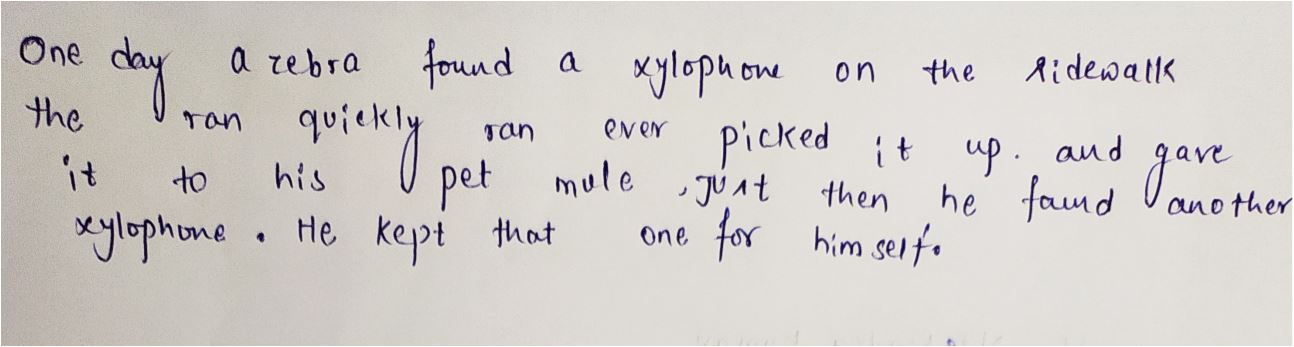 One day a zebra found a xylophone on the sidewalk
the ran quickly ran ever picked it up. and gave
it to his pet mule, just then he found another
xylophone. He kept that one for himself.